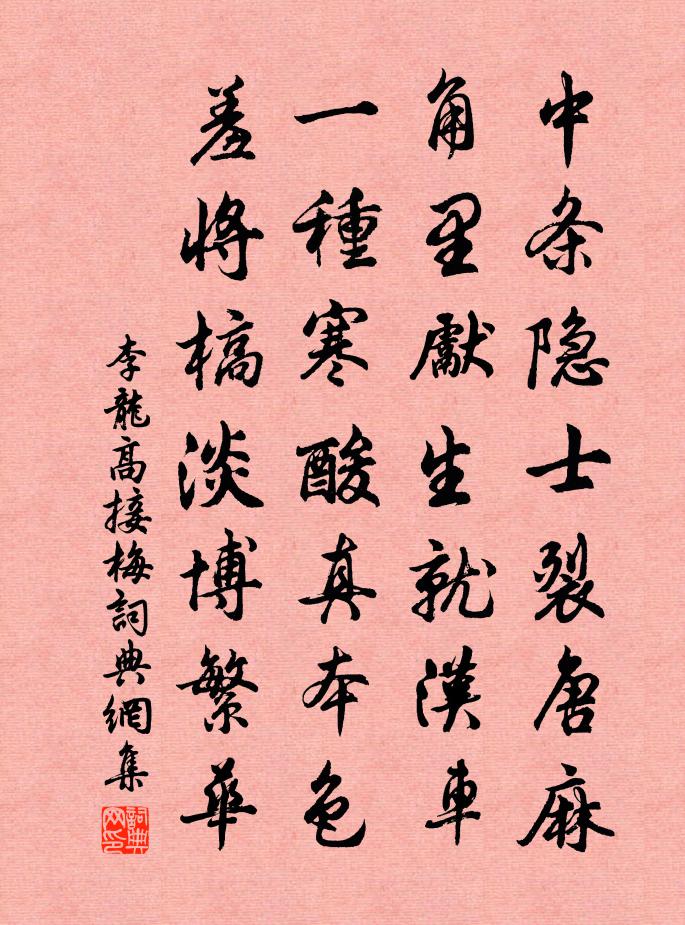 中条隐士裂唐麻
角里獻生就漢車
一種寒酸真本色
羞將槁淡博繁華
李龍高接梅詞典網集
詞典网印